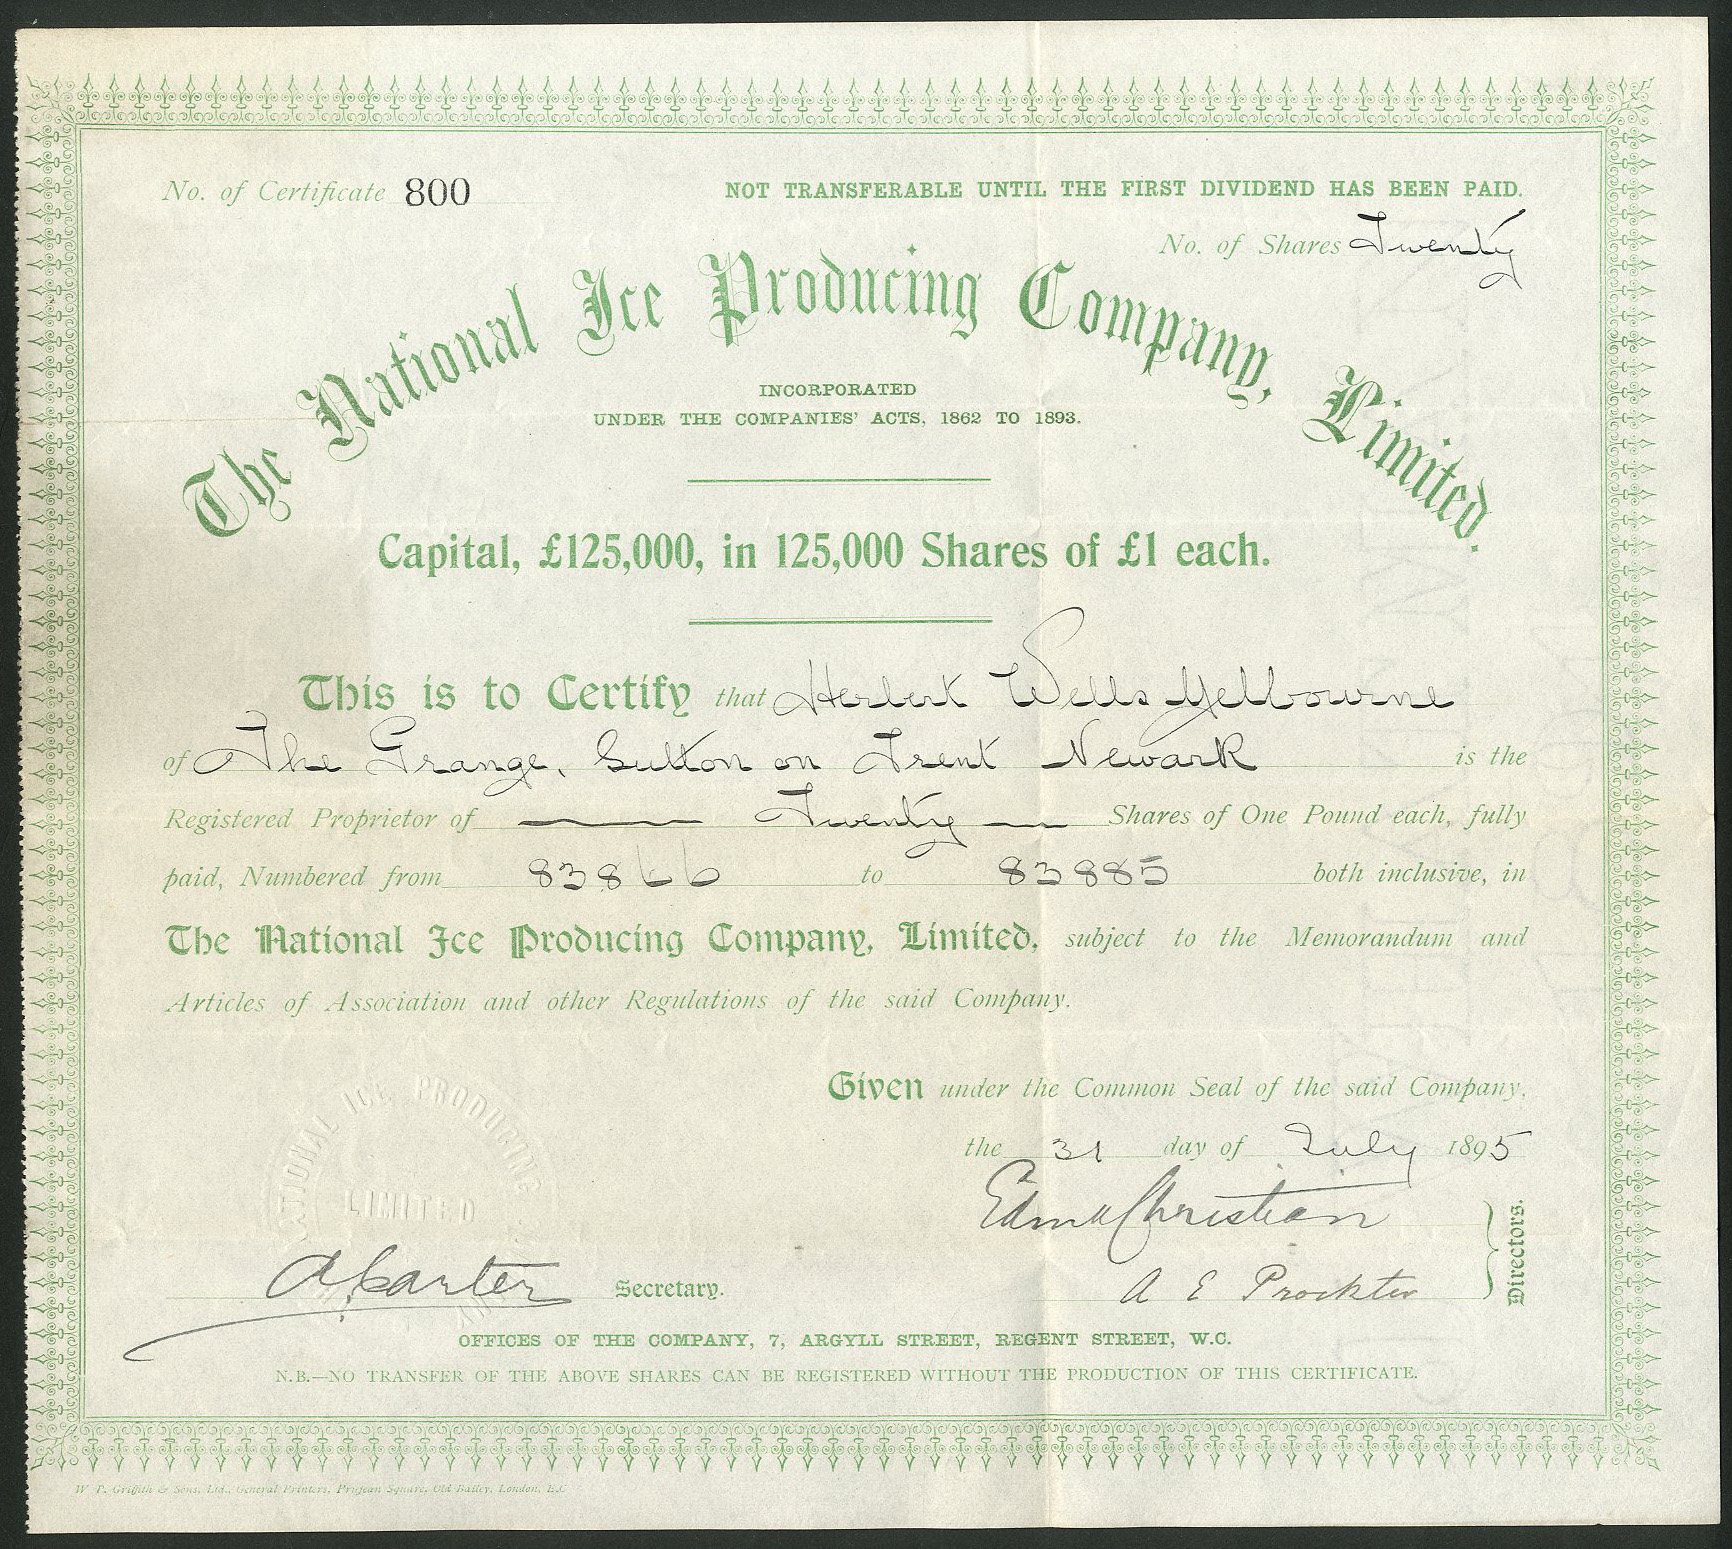 No. of Certificate 800
NOT TRANSFERABLE UNTIL THE FIRST DIVIDEND HAS BEEN PAID.
No. of Shares Twenty
The National Ice Producing Company, Limited.
INCORPORATED
UNDER THE COMPANIES' ACTS, 1862 TO 1893.
Capital, £125,000, in 125,000 Shares of £1 each.
This is to Certify that Herbert Wells Melbourne
of The Grange, Sutton on Trent Newark is the
Registered Proprietor of Twenty Shares of One Pound each, fully
paid, Numbered from 83866 to 83885 both inclusive, in
The National Ice Producing Company, Limited, subject to the Memorandum and
Articles of Association and other Regulations of the said Company.
Given under the Common Seal of the said Company,
the 31 day of July 1895
NATIONAL ICE PRODUCING
LIMITED
Christian
A E Prockter
Directors.
A Carter Secretary.
OFFICES OF THE COMPANY, 7, ARGYLL STREET, REGENT STREET, W.C.
N.B.—NO TRANSFER OF THE ABOVE SHARES CAN BE REGISTERED WITHOUT THE PRODUCTION OF THIS CERTIFICATE.
W. P. Griffith & Sons, Ltd., General Printers, Prujean Square, Old Bailey, London, E.C